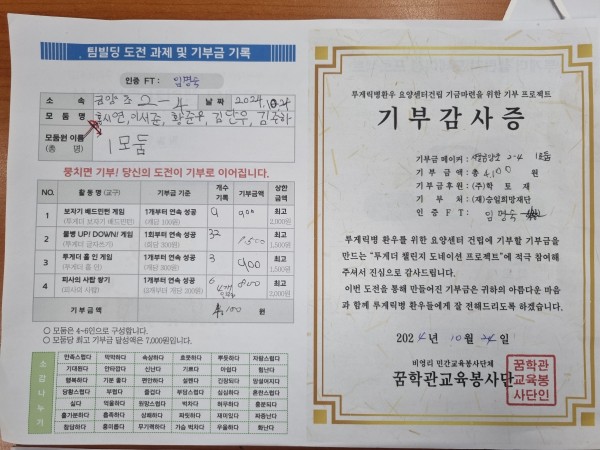 팀빌딩 도전 과제 및 기부금 기록
인증 FT : 임명숙
소 속 금양초 2-4 날 짜 2024. 10.24
모 둠 명 홍시연, 이서준, 황준우, 김단우, 김주하
모둠원 이름 1모둠
(총 명)
뭉치면 기부! 당신의 도전이 기부로 이어집니다.
NO. 활 동 명 (교구) 기부금 기준 개수 기록 기부금액 상한 금액
1 보자기 배드민턴 게임 1개부터 연속 성공 9 900 최고
(투게더 보자기 배드민턴) (개당 100원) 2,000원
2 물병 UP! DOWN! 게임 1회부터 연속 성공 32 1,500 최고
(투게더 글자쓰기) (회당 300원) 1,500원
3 투게더 홀 인 게임 1개부터 연속 성공 3 900 최고
(투게더 홀 인) (개당 300원) 1,500원
4 피사의 사탑 쌓기 6 800 최고
(피사의 사탑) 2,000원
기 부 금 액 4,100 원
○ 모둠은 4~6인으로 구성합니다.
○ 모둠당 최고 기부금 달성액은 7,000원입니다.
소감나누기
만족스럽다 막막하다 속상하다 흐뭇하다 뿌듯하다 자랑스럽다
기대된다 안타깝다 신난다 기쁘다 아쉽다 힘난다
행복하다 기분 좋다 편안하다 설렌다 긴장되다 망설여지다
당황스럽다 부럽다 즐겁다 부담스럽다 심심하다 혼란스럽다
싫다 억울하다 원망스럽다 벅차다 허무하다 흥분되다
홀가분하다 흡족하다 상쾌하다 따뜻하다 재미있다 짜증난다
참담하다 흥미롭다 무기력하다 가슴 벅차다 우울하다 화난다
투게릭병환우 요양센터건립 기금마련을 위한 기부 프로젝트
기부감사증
기부금 메이커 : 금양초 2-4 1모둠
기 부 금 액 : 총 4,100 원
기부금후원 : (주)학 토 재
기 부 처 : (재)승일희망재단
인 증 FT : 임명숙
루게릭병 환우를 위한 요양센터 건립에 기부할 기부금을
만드는 "투게더 챌린지 도네이션 프로젝트"에 적극 참여해
주셔서 진심으로 감사드립니다.
이번 도전을 통해 만들어진 기부금은 귀하의 아름다운 마음
과 함께 루게릭병 환우들에게 잘 전해드리도록 하겠습니다.
2024년 10월 24일
비영리 민간교육봉사단체
꿈학관교육봉사단
꿈학관
교육봉
사단인